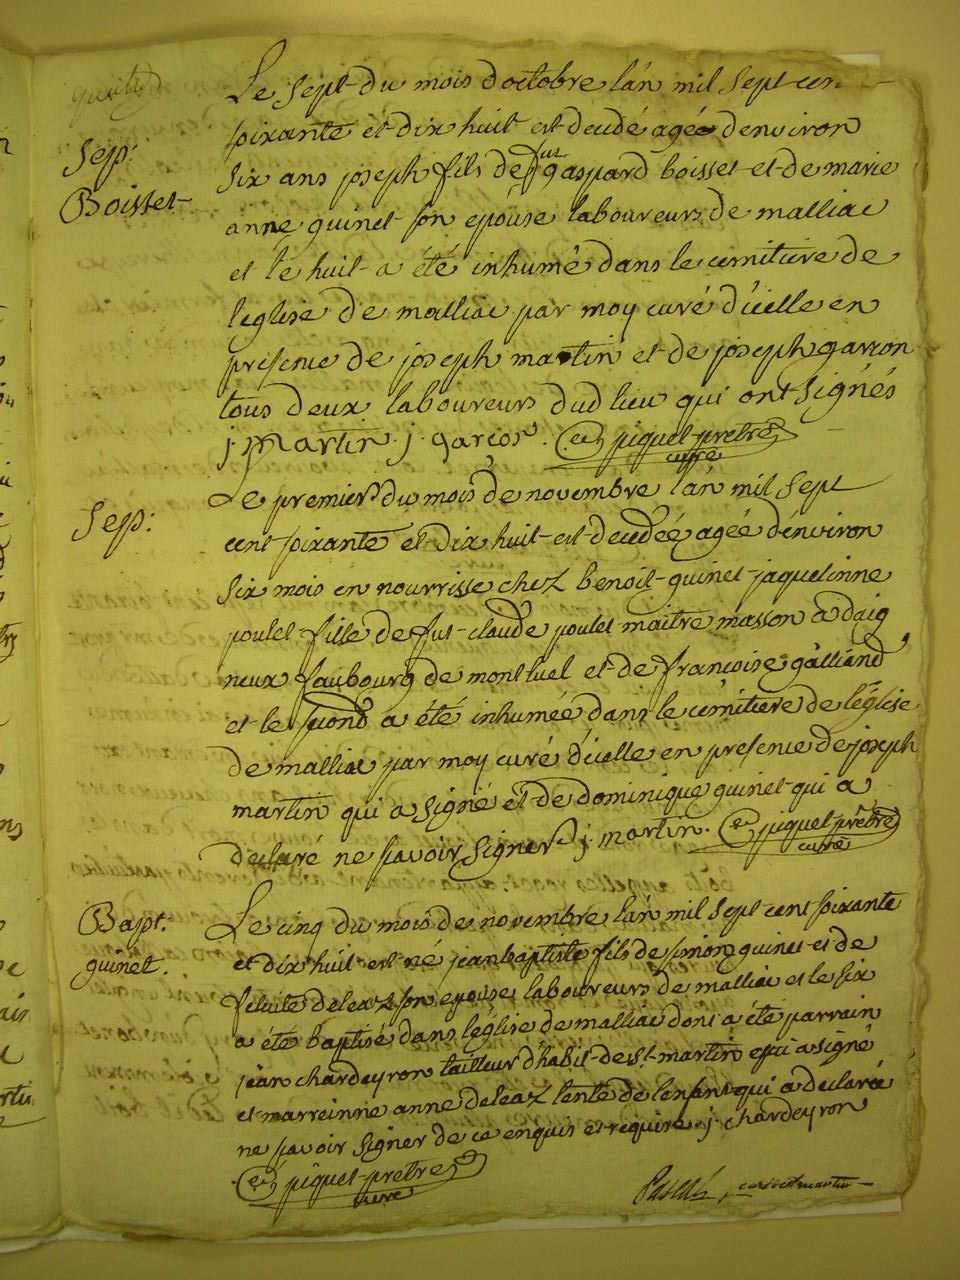 Sep:
Boisset
Le sept du mois doctobre lan mil sept cen
soixante et dix huit est decedé agé denviron
six ans joseph fils de fut gaspard boisset et de marie
anne guinet son epouse laboureurs de malliac
et le huit a été inhumé dans le cemitiere de
leglise de malliac par moy curé dicelle en
presence de joseph martin et de joseph garçon
tous deux laboureurs dud lieu qui ont signés
j. martin. j. garçon. piquet pretre
curé
Sep:
Le premier du mois de novembre lan mil sept
cent soixante et dix huit est decedée agée denviron
six mois en nourrisse chez benoit guinet jaquelinne
poulet fille de fut claude poulet maitre masson a daig
neux faubourg de montluel et de françoise galliand
et le second a été inhumée dans le cemitiere de leglise
de malliac par moy curé dicelle en presence de joseph
martin qui a signé et de dominique guinet qui a
declaré ne savoir signer j. martin. piquet prétre
curré
Bapt.
guinet.
Le cinq du mois de novembre lan mil sept cent soixante
et dix huit est né jean baptiste fils de simon guinet et de
felicité deleaz son epouse laboureurs de malliac et le six
a été baptisé dans leglise de malliac dont a été parrain
jean chardeyron tailleur dhabit de st martin qui a signé
et marreinne anne deleaz tente de lenfant qui a declarée
ne savoir signer de ce enquis et requise. j. chardeyron
piquet pretre
curé